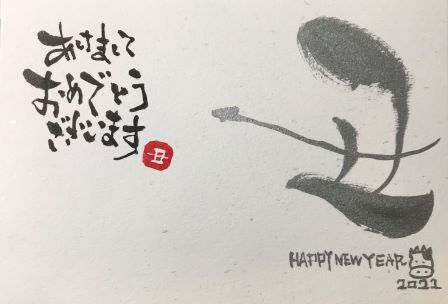 あけまして
おめでとう
ございます
丑
丑
HAPPY NEW YEAR
2021